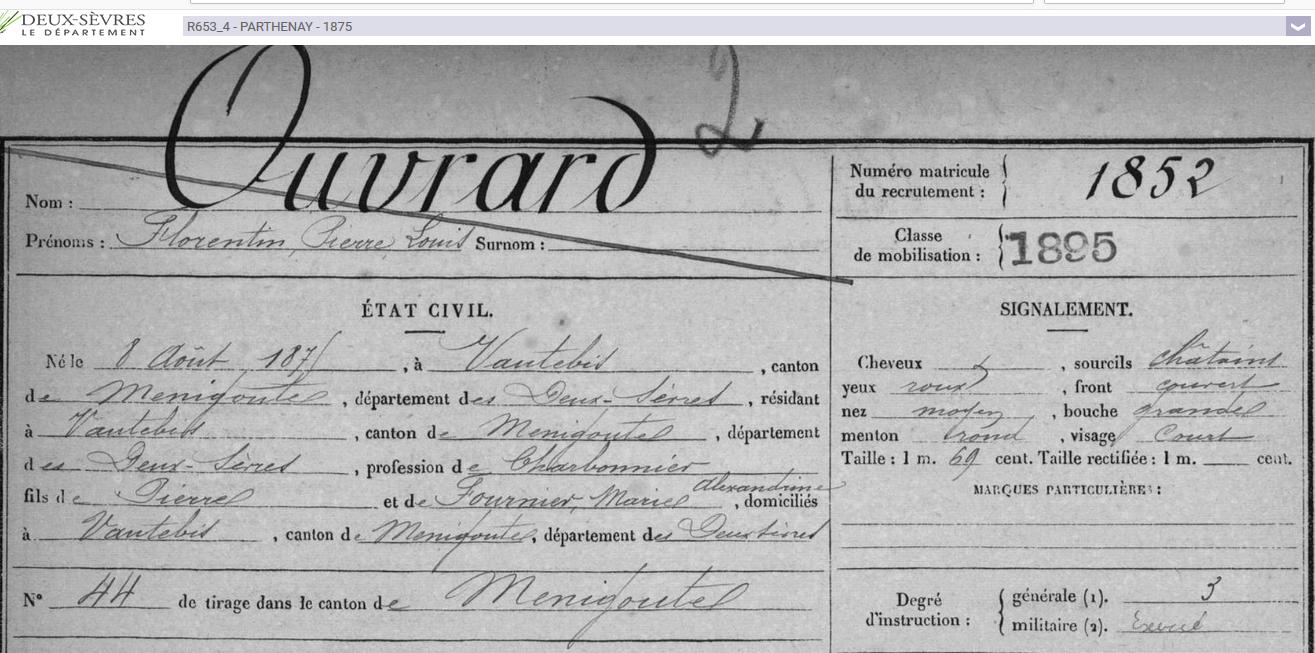 DEUX-SÈVRES
LE DÉPARTEMENT
R653_4 - PARTHENAY - 1875
2
Nom : Ouvrard
Prénoms : Florentin, Pierre, Louis Surnom :
Numéro matricule du recrutement : 1852
Classe de mobilisation : 1895
ÉTAT CIVIL.
Né le 8 Août 1875, à Vautebis, canton
de Menigoute, département des Deux-Sèvres, résidant
à Vautebis, canton de Menigoute, département
des Deux-Sèvres, profession de Charbonnier
fils de Pierre et de Fournier, Marie Alexandrine, domiciliés
à Vautebis, canton de Menigoute, département des Deux Sèvres
N° 44 de tirage dans le canton de Menigoute
SIGNALEMENT.
Cheveux , sourcils châtains
yeux roux, front couvert
nez moyen, bouche grande
menton rond, visage court
Taille : 1 m. 69 cent. Taille rectifiée : 1 m. cent.
MARQUES PARTICULIÈRES :
Degré d'instruction : générale (1). 3
militaire (2). Exercé